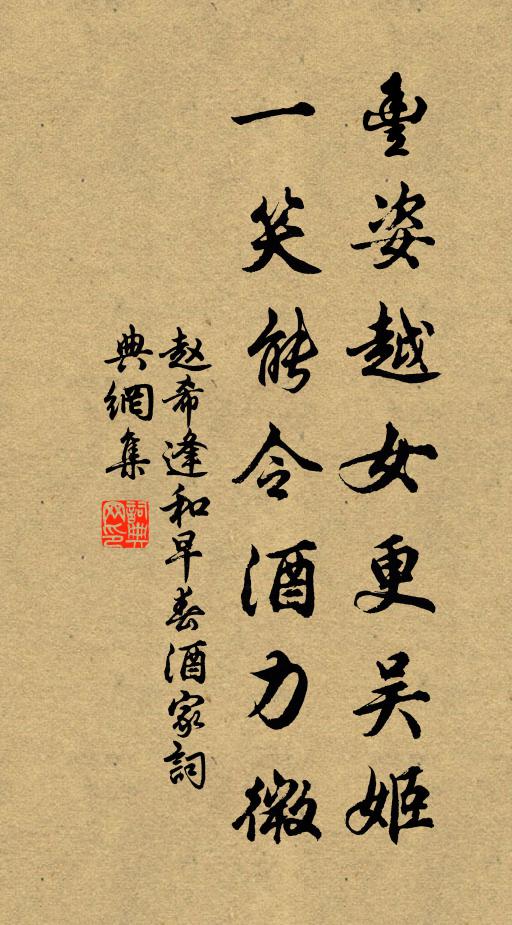 豐姿越女更吴姬
一笑能令酒力微
赵希逢和早春酒家詞
典網集
詞典網印